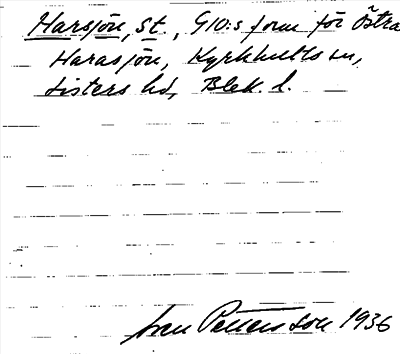 Harsjön, St., GIO:s form för Östra
Harasjön, Kyrkhults sn,
Listers hd, Blek. l.
Ivar Pettersson 1936